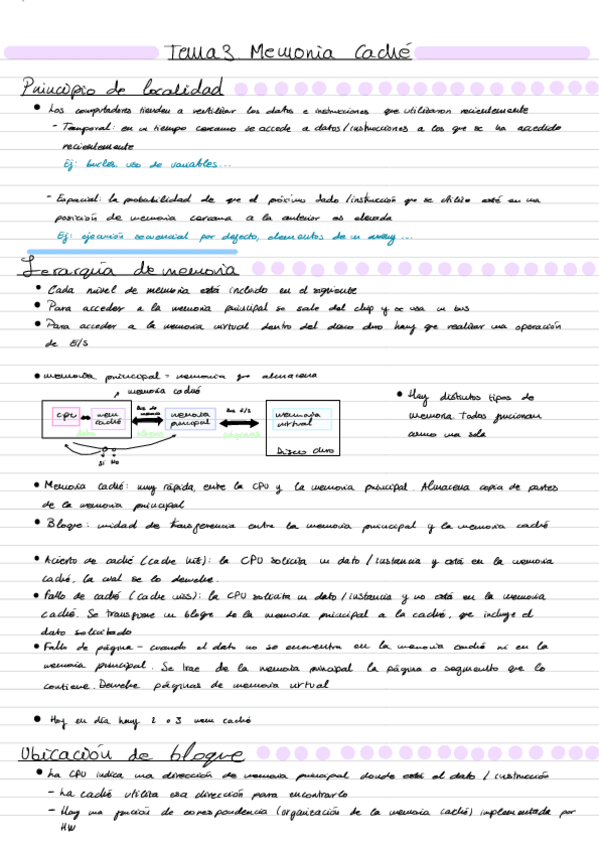 Tema 3. Memoria Caché
Principio de localidad
• Los computadores tienden a reutilizar los datos e instrucciones que utilizaron recientemente
- Temporal: en un tiempo cercano se accede a datos/instrucciones a los que se ha accedido
recientemente
Ej: bucles, uso de variables...
- Espacial: la probabilidad de que el próximo dato/instrucción que se utilice esté en una
posición de memoria cercana a la anterior es elevada
Ej: ejecución secuencial por defecto, elementos de un array...
Jerarquía de memoria
• Cada nivel de memoria está incluido en el siguiente
• Para acceder a la memoria principal se sale del chip y se usa un bus
• Para acceder a la memoria virtual dentro del disco duro hay que realizar una operación
de E/S
• memoria principal = memoria que almacena
→ memoria caché
CPU
mem caché
Bus de memoria
memoria principal
Bus E/S
memoria virtual
Disco duro
datos
bloques
Sí No
• Hay distintos tipos de
memoria. Todas funcionan
como una sola
• Memoria caché: muy rápida, entre la CPU y la memoria principal. Almacena copia de partes
de la memoria principal
• Bloque: unidad de transferencia entre la memoria principal y la memoria caché
• Acierto de caché (cache hit): la CPU solicita un dato/instancia y está en la memoria
caché, la cual se lo devuelve.
• Fallo de caché (cache miss): la CPU solicita un dato/instancia y no está en la memoria
caché. Se transfiere un bloque de la memoria principal a la caché, que incluye el
dato solicitado
• Fallo de página - cuando el dato no se encuentra en la memoria caché ni en la
memoria principal. Se trae de la memoria principal la página o segmento que lo
contiene. Devuelve páginas de memoria virtual
• Hoy en día hay 2 o 3 mem caché
Ubicación de bloque
• La CPU indica una dirección de memoria principal donde está el dato / instrucción
- La caché utiliza esa dirección para encontrarlo
- Hay una función de correspondencia (organización de la memoria caché) implementada por
HW